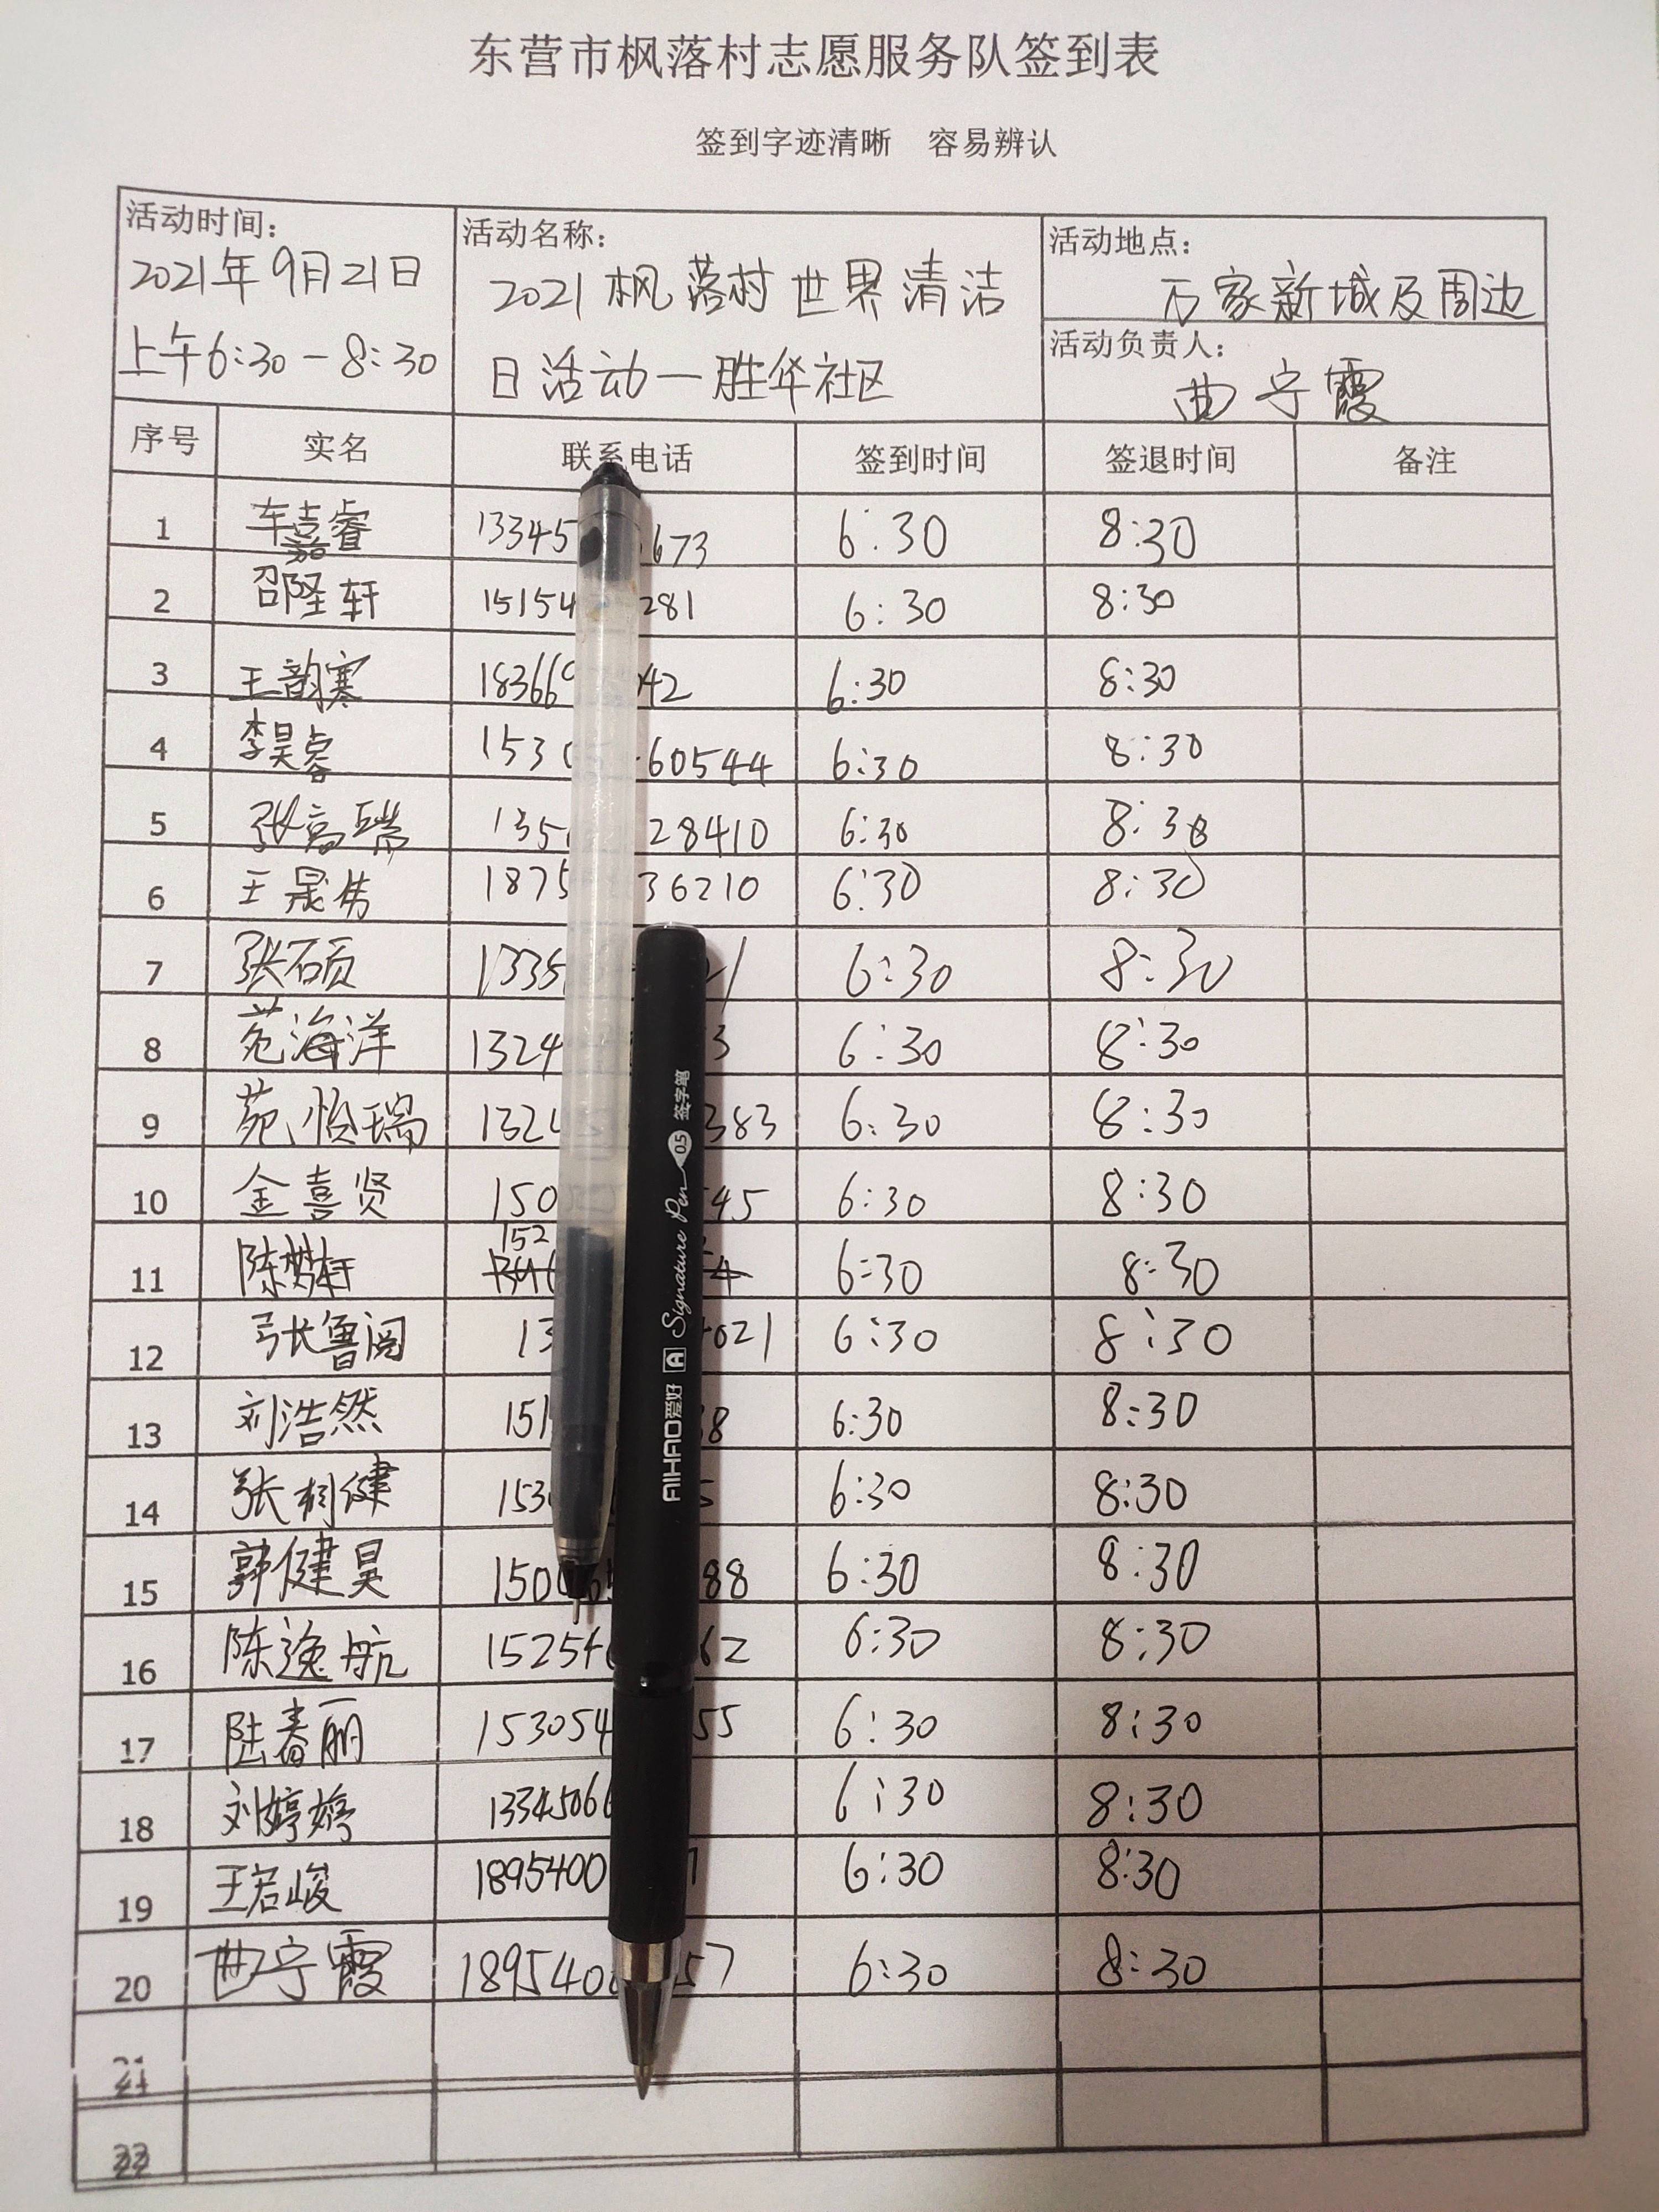 东营市枫落村志愿服务队签到表
签到字迹清晰 容易辨认
活动时间： 活动名称： 活动地点：
2021年9月21日 2021枫落村世界清洁 万家新城及周边
上午6:30-8:30 日活动—胜华社区 活动负责人：
曲宁霞
序号 实名 联系电话 签到时间 签退时间 备注
1 车嘉睿 13345 673 6:30 8:30
2 召隆轩 15154 281 6:30 8:30
3 王韵寒 18366 42 6:30 8:30
4 李昊睿 1530 60544 6:30 8:30
5 张高瑞 135 28410 6:30 8:30
6 王晟 1875 36210 6:30 8:30
7 张硕 1335 21 6:30 8:30
8 苑海洋 1324 3 6:30 8:30
9 苑慎瑞 132 383 6:30 8:30
10 金喜贤 150 45 6:30 8:30
11 陈 轩 152 6:30 8:30
12 张鲁闽 13 4021 6:30 8:30
13 刘浩然 151 38 6:30 8:30
14 张 健 153 5 6:30 8:30
15 郭健昊 150 88 6:30 8:30
16 陈逸航 15254 62 6:30 8:30
17 陆春丽 153054 55 6:30 8:30
18 刘婷婷 1334506 6:30 8:30
19 王若峻 1895400 7 6:30 8:30
20 曲宁霞 189540 57 6:30 8:30
21
22
AIHAO爱好 A Signature Pen 0.5 签字笔